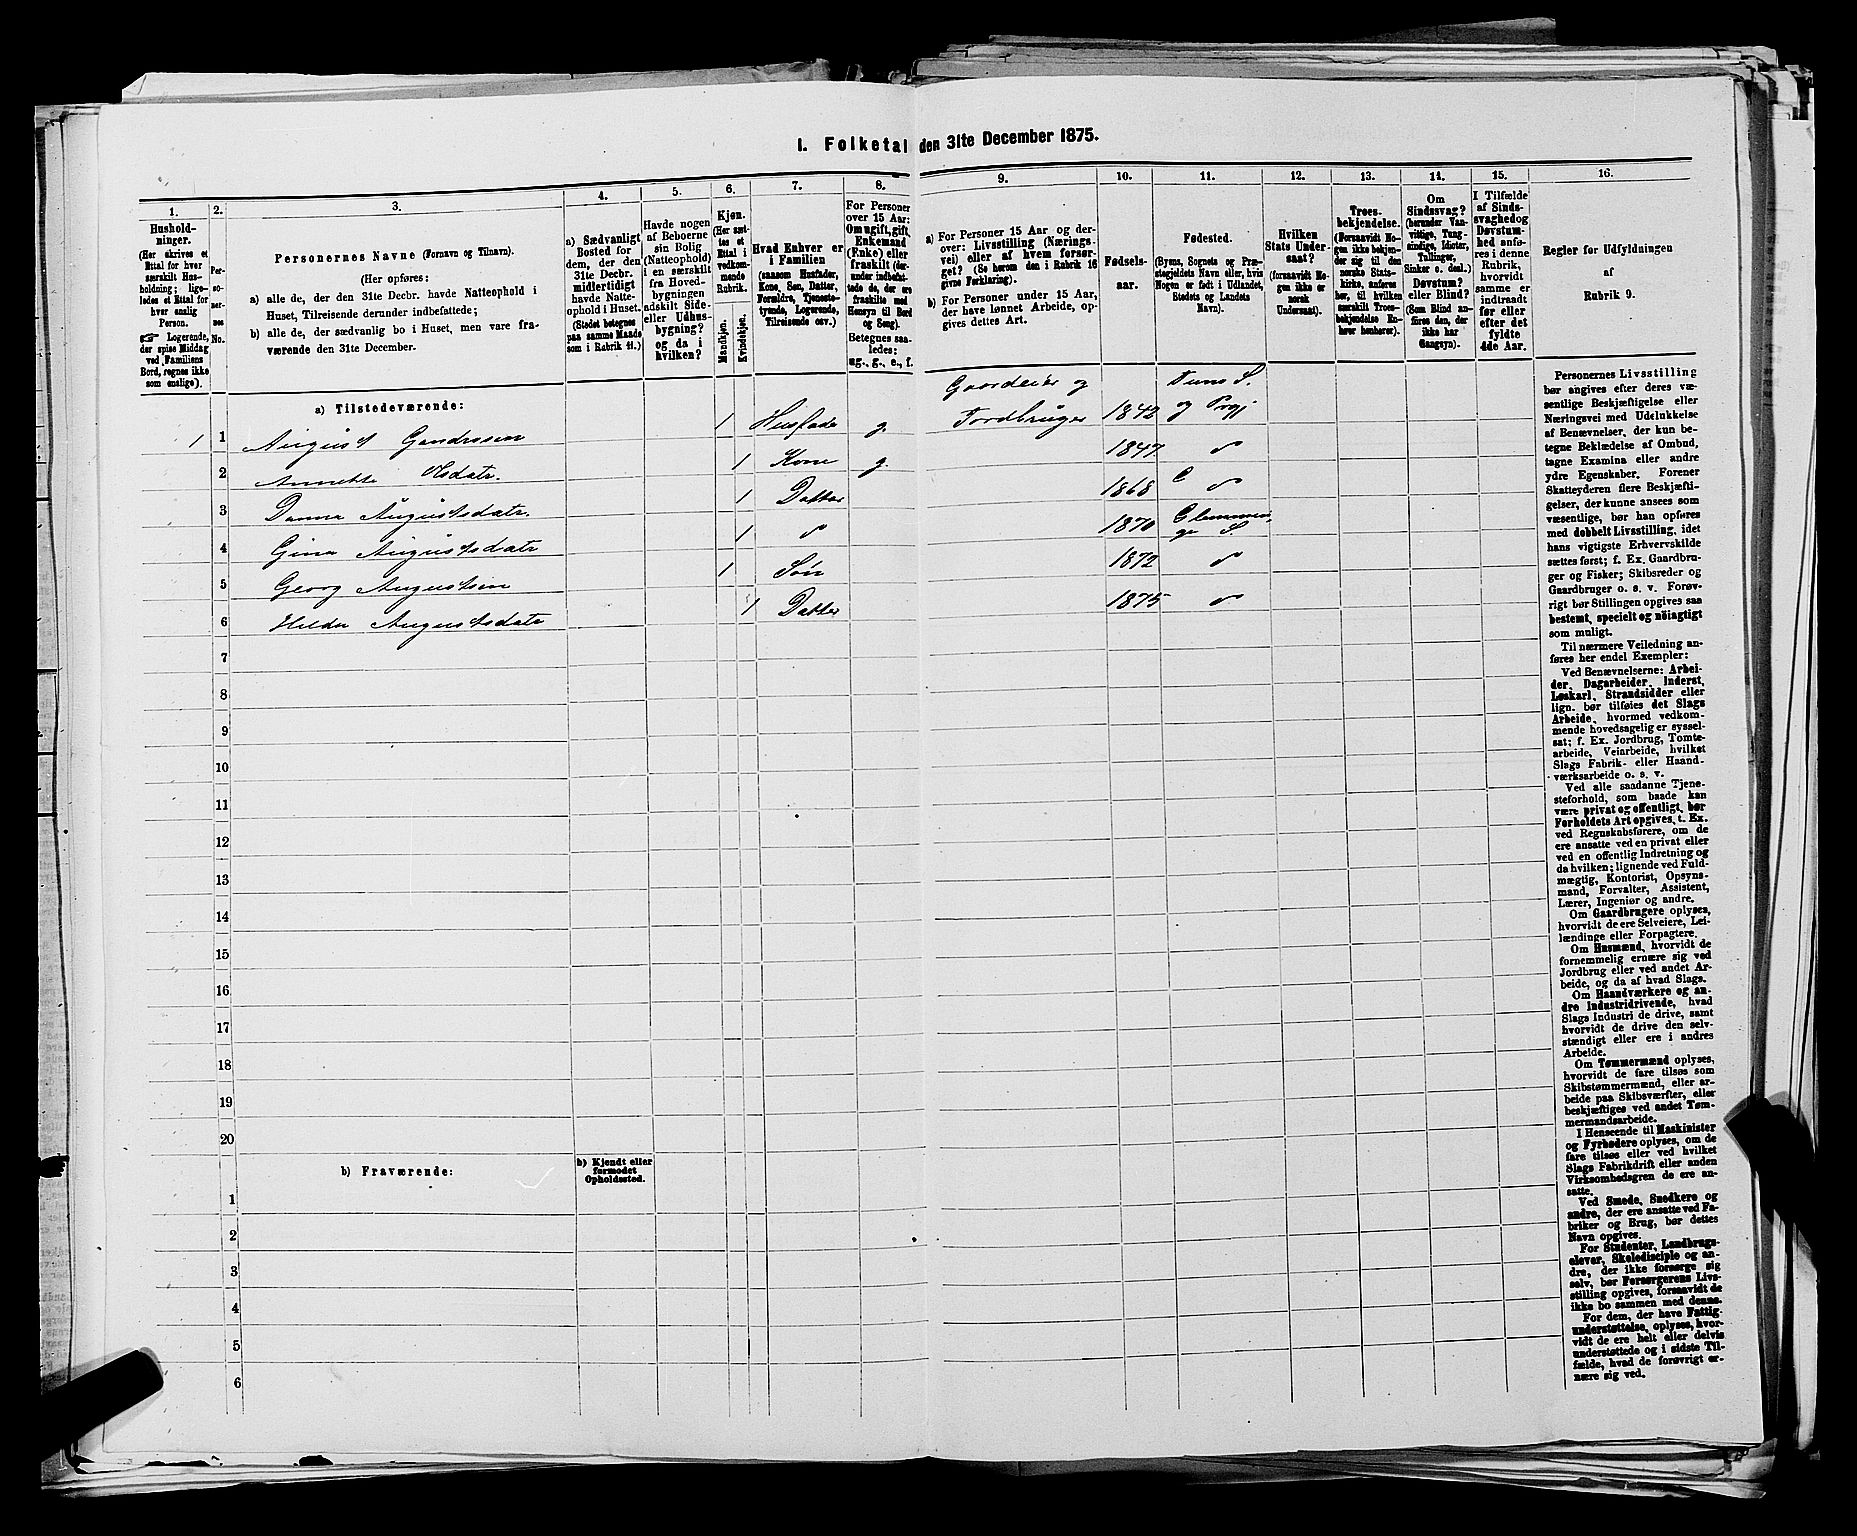 I. Folketal den 31te December 1875.
1.
Hushold-
ninger.
(Her skrives et
Ettal for hver
særskilt Hus-
holdning; lige-
ledes et Ettal for
hver enslig
Person.
Logerende,
der spise Middag
ved Familiens
Bord, regnes ikke
som enslige).
2.
Per-
so-
ner-
nes
No.
3.
Personernes Navne (Fornavn og Tilnavn).
(Her opføres:
a) alle de, der den 31te Decbr. havde Natteophold i
Huset, Tilreisende derunder indbefattede;
b) alle de, der sædvanlig bo i Huset, men vare fra-
værende den 31te December.
4.
a) Sædvanligt
Bosted for
dem, der den
31te Decbr.
midlertidigt
havde Natte-
ophold i Huset.
(Stedet betegnes
paa samme Maade
som i Rubrik 11.)
5.
Havde nogen
af Beboerne
sin Bolig
(Natteophold)
i en særskilt
fra Hoved-
bygningen
adskilt Side-
eller Udhus-
bygning?
og da i
hvilken?
6.
Kjøn.
(Her sæt-
tes et
Ettal i
vedkom-
mende
Rubrik.
Mandkjøn.
Kvindekjøn.
7.
Hvad Enhver er
i Familien
(saasom Husfader,
Kone, Søn, Datter,
Forældre, Tjeneste-
tyende, Logerende,
Tilreisende osv.)
8.
For Personer
over 15 Aar:
Om ugift, gift,
Enkemand
(Enke) eller
fraskilt (der-
under indbefat-
tede de, der ere
fraskilte med
Hensyn til Bord
og Seng).
Betegnes saa-
ledes:
ug., g., e., f.
9.
a) For Personer 15 Aar og der-
over: Livsstilling (Nærings-
vei) eller af hvem forsør-
get? (Se herom den i Rubrik 16
givne Forklaring).
b) For Personer under 15 Aar,
der have lønnet Arbeide, op-
gives dettes Art.
10.
Fødsels-
aar.
11.
Fødested.
(Byens, Sognets og Præ-
stegjeldets Navn eller, hvis
Nogen er født i Udlandet,
Stedets og Landets
Navn).
12.
Hvilken
Stats Under-
saat?
(forsaavidt No-
gen ikke er
norsk
Undersaat).
13.
Troes-
bekjendelse.
(Forsaavidt No-
gen ikke bekjen-
der sig til den
norske Stats-
kirke, anføres
her, til hvilken
særskilt Troes-
bekjendelse En-
hver henhører).
14.
Om
Sindssvag?
(herunder Van-
vittige, Tung-
sindige, Idioter,
Tullinger,
Sinker o. desl.)
Døvstum?
eller Blind?
(Som Blind an-
føres den, der
ikke har
Gangsyn).
15.
I Tilfælde
af Sinds-
svaghed og
Døvstum-
hed anfø-
res i denne
Rubrik,
hvorvidt
samme er
indtraadt
før eller
efter det
fyldte
4de Aar.
16.
Regler for Udfyldningen
af
Rubrik 9.
a) Tilstedeværende:
1 1 August Gundersen 1 Husfader g. Gaardeier og Jordbruger 1842 Tune S. og Prgj
2 Annette Olsdatr. 1 Kone g. 1847 d
3 August­sdatr. 1 Datter 1868 d
4 Gina Augustsdatr 1 d 1870 Glemminge S.
5 Georg Augustsen 1 Søn 1872 d
6 Hilda Augustsdatr 1 Datter 1875 d
7
8
9
10
11
12
13
14
15
16
17
18
19
20
b) Fraværende:
b) Kjendt eller
formodet
Opholdssted.
1
2
3
4
5
6
Personernes Livsstilling
bør angives efter deres væ-
sentlige Beskjæftigelse eller
Næringsvei med Udelukkelse
af Benævnelser, der kun be-
tegne Beklædelse af Ombud,
tagne Examina eller andre
ydre Egenskaber. Forener
Skatteyderen flere Beskjæfti-
gelser, der kunne ansees som
væsentlige, bør han opføres
med dobbelt Livsstilling, idet
hans vigtigste Erhvervskilde
sættes først; f. Ex. Gaardbru-
ger og Fisker; Skibsreder og
Gaardbruger o. s. v. Forøv-
rigt bør Stillingen opgives saa
bestemt, specielt og nöiagtigt
som muligt.
Til nærmere Veiledning an-
føres her endel Exempler:
Ved Benævnelserne: Arbei-
der, Dagarbeider, Inderst,
Løskarl, Strandsidder eller
lign. bør tilføies det Slags
Arbeide, hvormed vedkom-
mende hovedsagelig er syssel-
sat; f. Ex. Jordbrug, Tomte-
arbeide, Veiarbeide, hvilket
Slags Fabrik- eller Haand-
værksarbeide o. s. v.
Ved alle saadanne Tjene-
steforhold, som baade kan
være privat og offentligt, bør
Forholdets Art opgives, t. Ex.
ved Regnskabsførere, om de
ere ansatte ved en privat eller
ved en offentlig Indretning og
da hvilken; lignende ved Fuld-
mægtig, Kontorist, Opsyns-
mand, Forvalter, Assistent,
Lærer, Ingeniør og andre.
Om Gaardbrugere oplyses,
hvorvidt de ere Selveiere, Lei-
lændinge eller Forpagtere.
Om Husmænd, hvorvidt de
fornemmelig ernære sig ved
Jordbrug eller ved andet Ar-
beide, og da af hvad Slags.
Om Haandværkere og an-
dre Industridrivende, hvad
Slags Industri de drive, samt
hvorvidt de drive den selv-
stændigt eller ere i andres
Arbeide.
Om Tømmermænd oplyses,
hvorvidt de fare tilsøs som
Skibstømmermænd, eller ar-
beide paa Skibsværfter, eller
beskjæftiges ved andet Tøm-
mermandsarbeide.
I Henseende til Maskinister
og Fyrbødere oplyses, om de
fare tilsøs eller ved hvilket
Slags Fabrikdrift eller anden
Virksomhedsgren de ere an-
satte.
Ved Smede, Snedkere og
andre, der ere ansatte ved Fa-
briker og Brug, bør dettes
Navn opgives.
For Studenter, Landbrugs-
elever, Skoledisciple og an-
dre, der ikke forsørge sig
selv, bør Forsørgerens Livs-
stilling opgives, forsaavidt de
ikke bo sammen med denne.
For dem, der have Fattig-
understøttelse, oplyses, hvor-
vidt de ere helt eller delvis
understøttede og i sidste Til-
fælde, hvad de forøvrigt er-
nære sig ved.